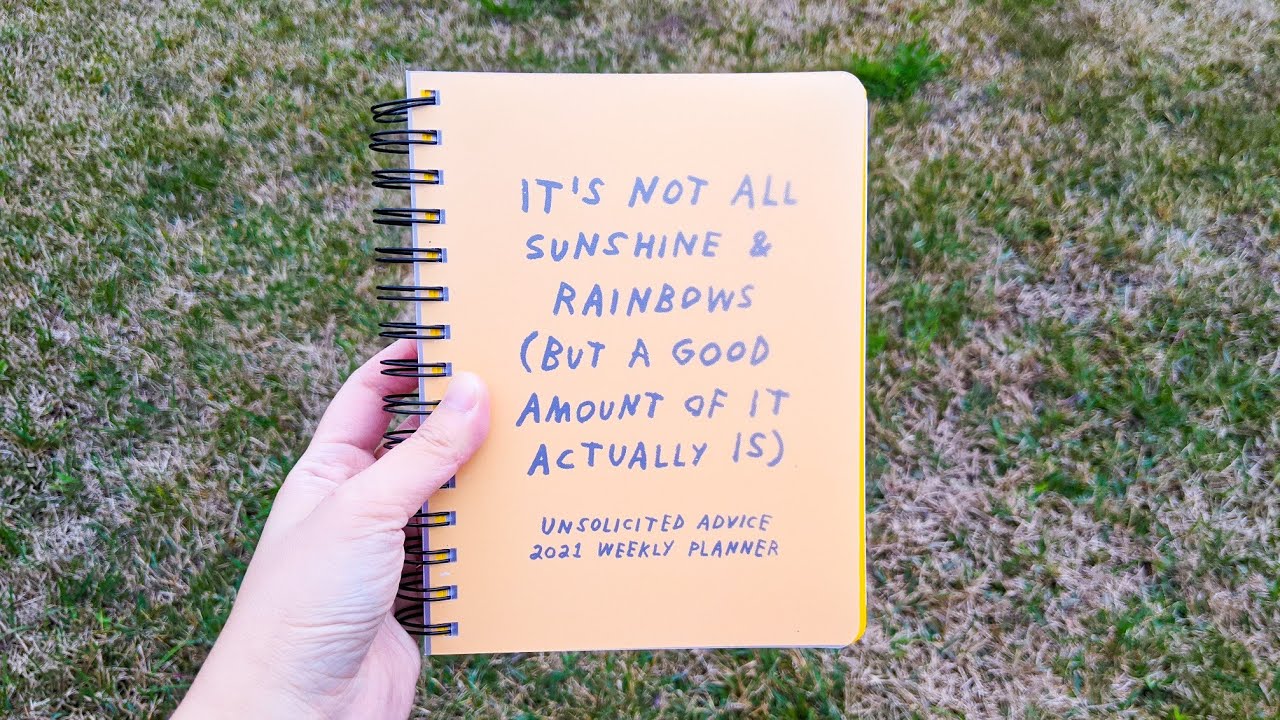 IT'S NOT ALL
SUNSHINE &
RAINBOWS
(BUT A GOOD
AMOUNT OF IT
ACTUALLY IS)
UNSOLICITED ADVICE
2021 WEEKLY PLANNER